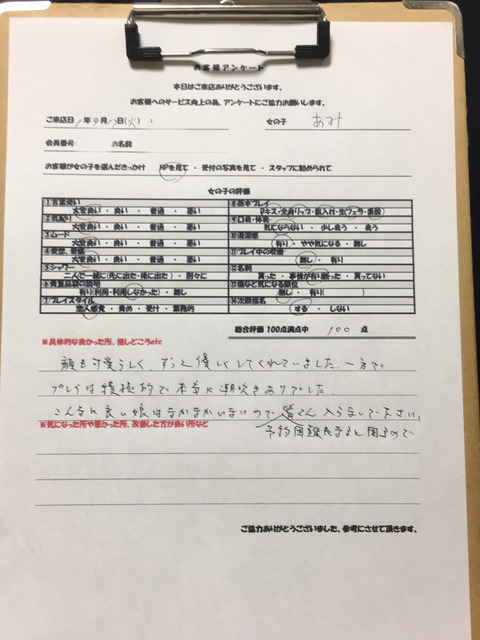 お客様アンケート
本日はご来店ありがとうございます。
お客様へのサービス向上の為、アンケートにご協力お願いします。
ご来店日 年9月 日(火) : 女の子 あみ
会員番号: お名前
お客様が女の子を選んだきっかけ HPを見て ・ 受付の写真を見て ・ スタッフに勧められて
女の子の評価
①言葉使い
大変良い ・ 良い ・ 普通 ・ 悪い
②気配り
大変良い ・ 良い ・ 普通 ・ 悪い
③ムード
大変良い ・ 良い ・ 普通 ・ 悪い
④愛想、愛嬌
大変良い ・ 良い ・ 普通 ・ 悪い
⑤シャワー
二人で一緒に(先に出た・後に出た) ・ 別々に
⑥貴重品袋の説明
有り(利用・利用しなかった) ・ 無し
⑦プレイスタイル
恋人感覚 ・ 責め ・ 受け ・ 業務的
⑧基本プレイ
Dキス・全身リップ・指入れ・生フェラ・素股
⑨口臭・体臭
気にならない ・ 少し臭う ・ 臭う
⑩清潔感
有り ・ やや気になる ・ 無し
⑪プレイ中の喫煙
無し ・ 有り
⑫名刺
貰った ・ 事情が有り断った ・ 貰ってない
⑬傷など気になる部位
無し ・ 有り( )
⑭次回指名
する ・ しない
総合評価 100点満点中 100 点
※具体的な良かった所、推しどころetc
顔も可愛らしく、ずっと優しくしてくれていました。一方で
プレイは積極的で本当に潮吹きありでした。
こんなに良い娘はなかなかいないので皆さん入らないで下さい。
予約困難になると困るので
※気になった所や悪かった所、改善した方が良い所など
ご協力ありがとうございました、参考にさせて頂きます。